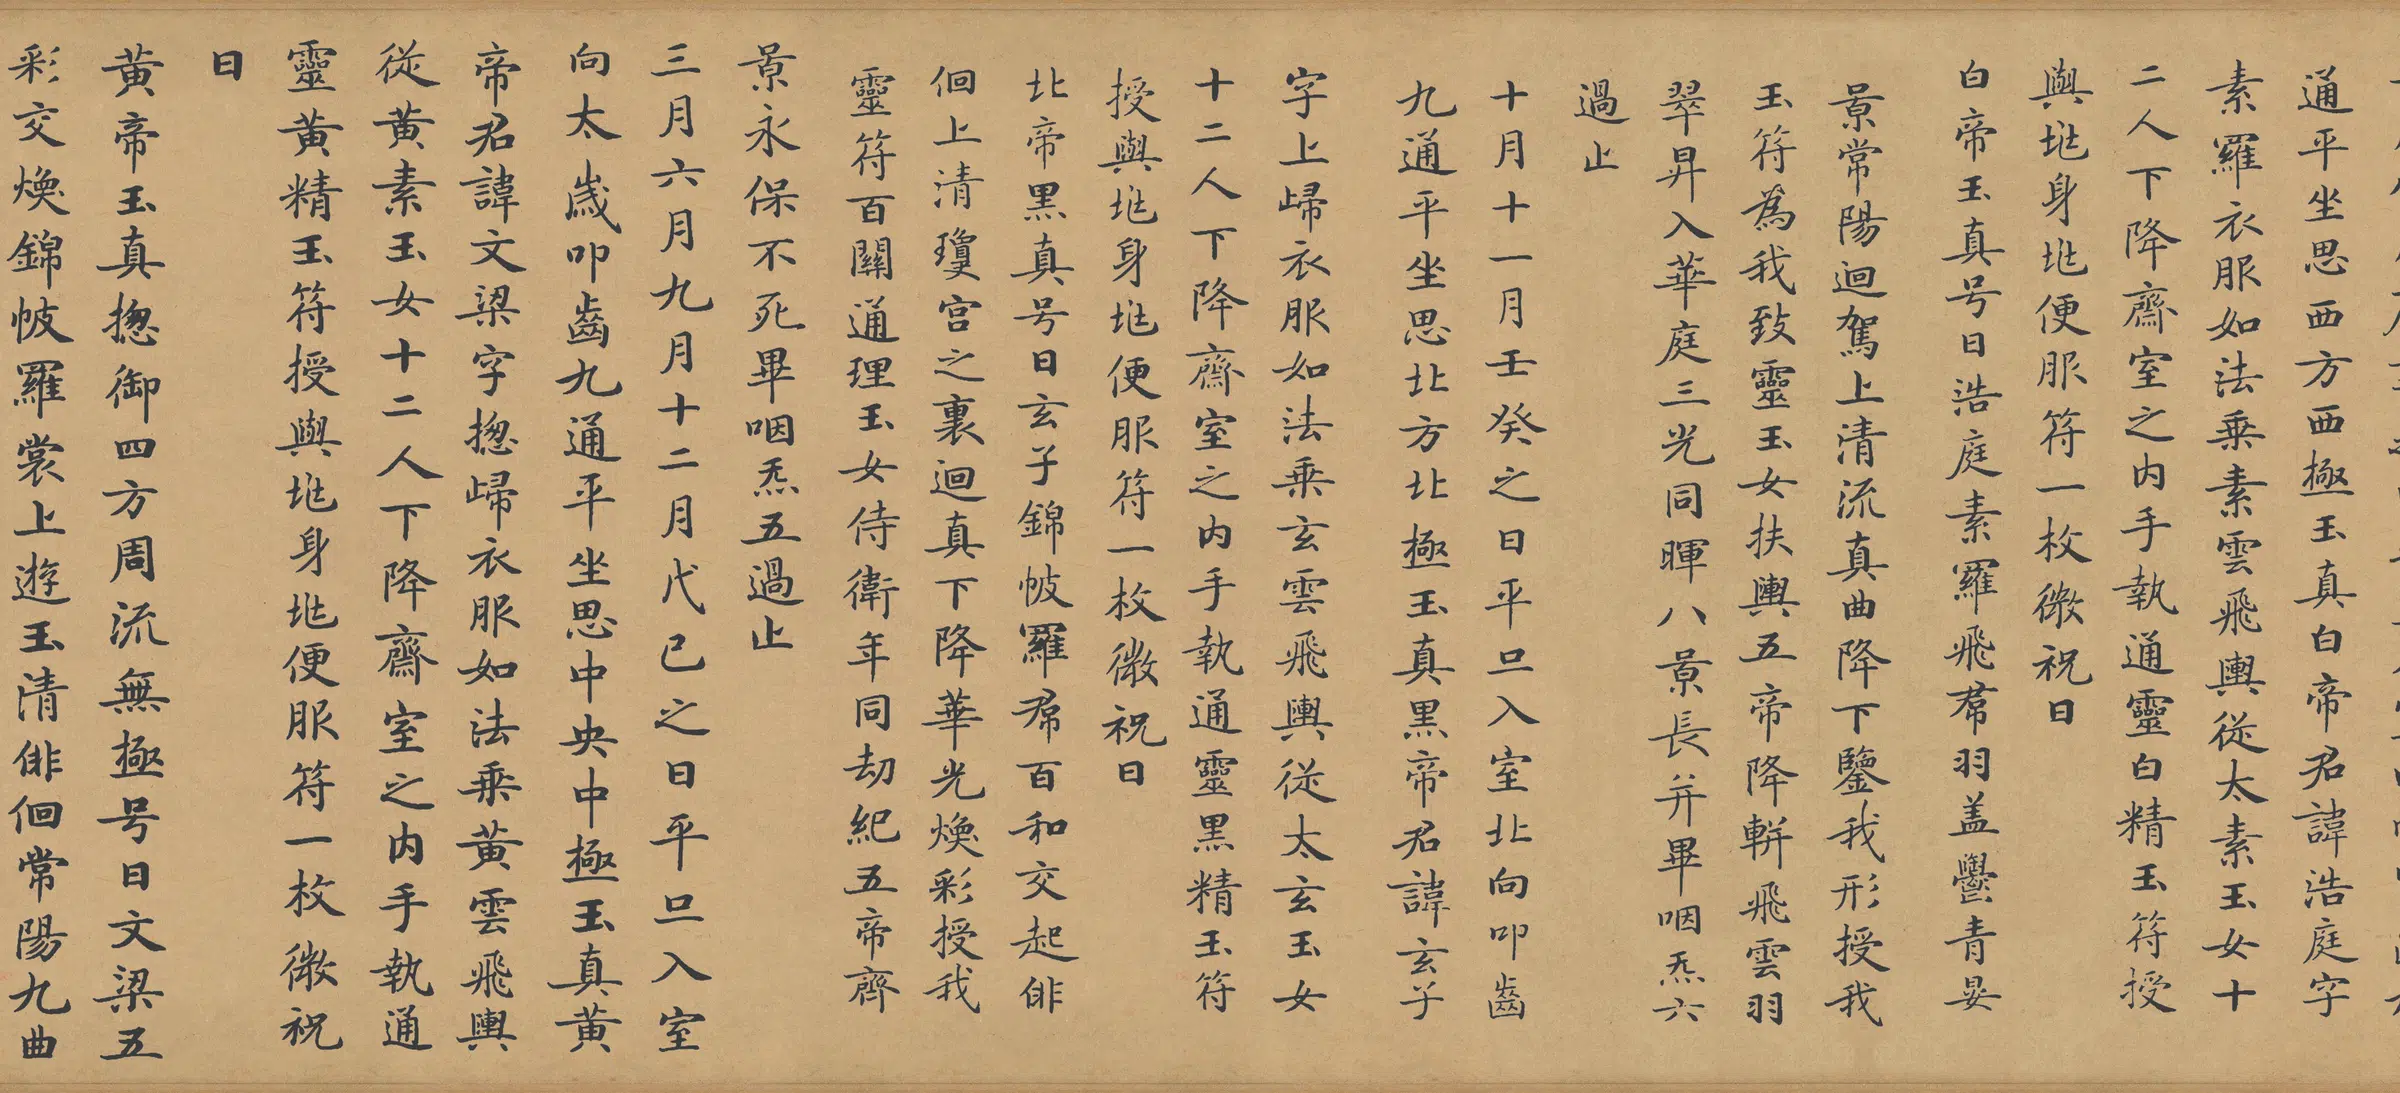 通平坐思西方西極玉真白帝君諱浩庭字
素羅衣服如法乘素雲飛輿從太素玉女十
二人下降齋室之内手執通靈白精玉符授
與兆身兆便服符一枚微祝曰
白帝玉真号曰浩庭素羅飛帬羽盖欝青晏
景常陽迴駕上清流真曲降下鑒我形授我
玉符為我致靈玉女扶輿五帝降軿飛雲羽
翠昇入華庭三光同暉八景長并畢咽炁六
過止
十月十一月壬癸之日平旦入室北向叩齒
九通平坐思北方北極玉真黑帝君諱玄子
字上歸衣服如法乘玄雲飛輿從太玄玉女
十二人下降齋室之内手執通靈黑精玉符
授與兆身兆便服符一枚微祝曰
北帝黑真号曰玄子錦帔羅帬百和交起俳
佪上清瓊宮之裏迴真下降華光煥彩授我
靈符百關通理玉女侍衛年同劫紀五帝齊
景永保不死畢咽炁五過止
三月六月九月十二月戊己之日平旦入室
向太歲叩齒九通平坐思中央中極玉真黃
帝君諱文梁字揔歸衣服如法乘黃雲飛輿
從黃素玉女十二人下降齋室之内手執通
靈黃精玉符授與兆身兆便服符一枚微祝
曰
黃帝玉真揔御四方周流無極号曰文梁五
彩交煥錦帔羅裳上遊玉清俳佪常陽九曲